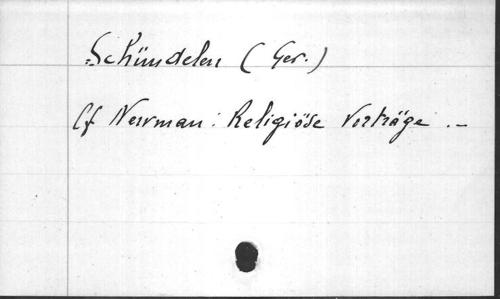 Schündelen (Ger.)
Cf Newman: Religiöse Vorträge . –